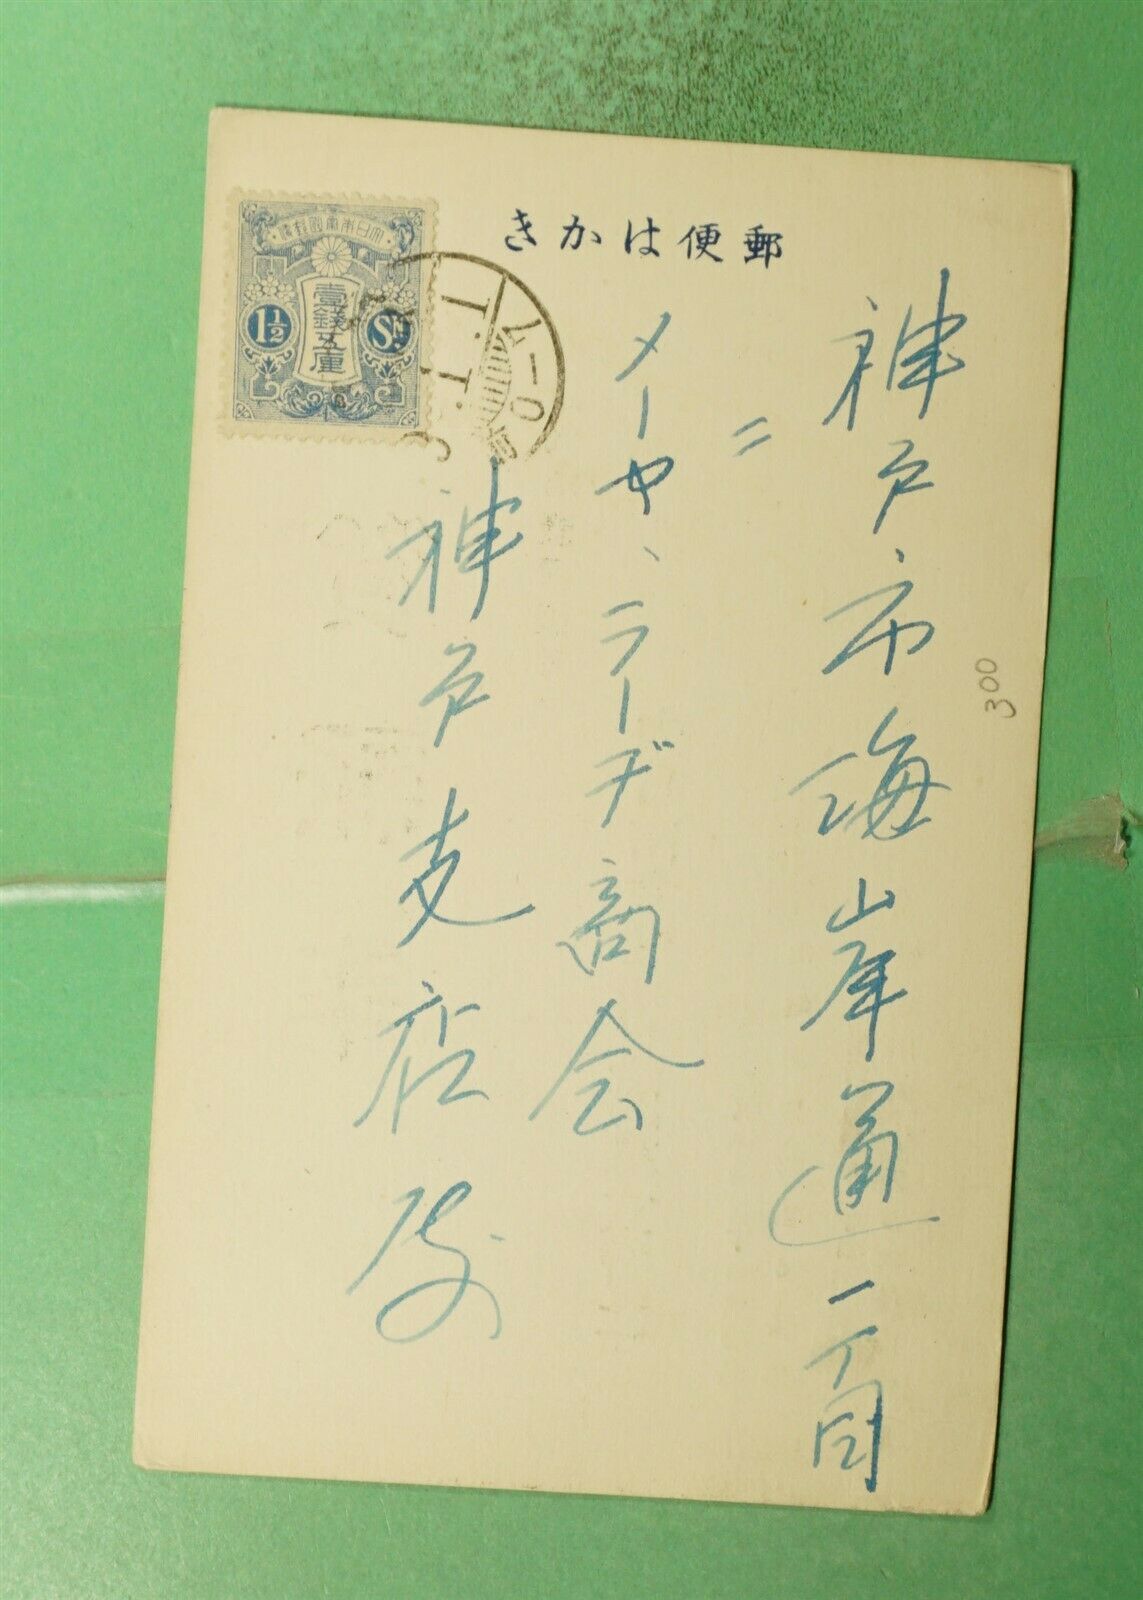 郵便はかき
大日本帝國郵便
壹錢五厘
1½
Sn.
1.1
0-7
神戸市海岸通一丁目
二
メーヤ、ラーヂ商会
神戸支店殿
300